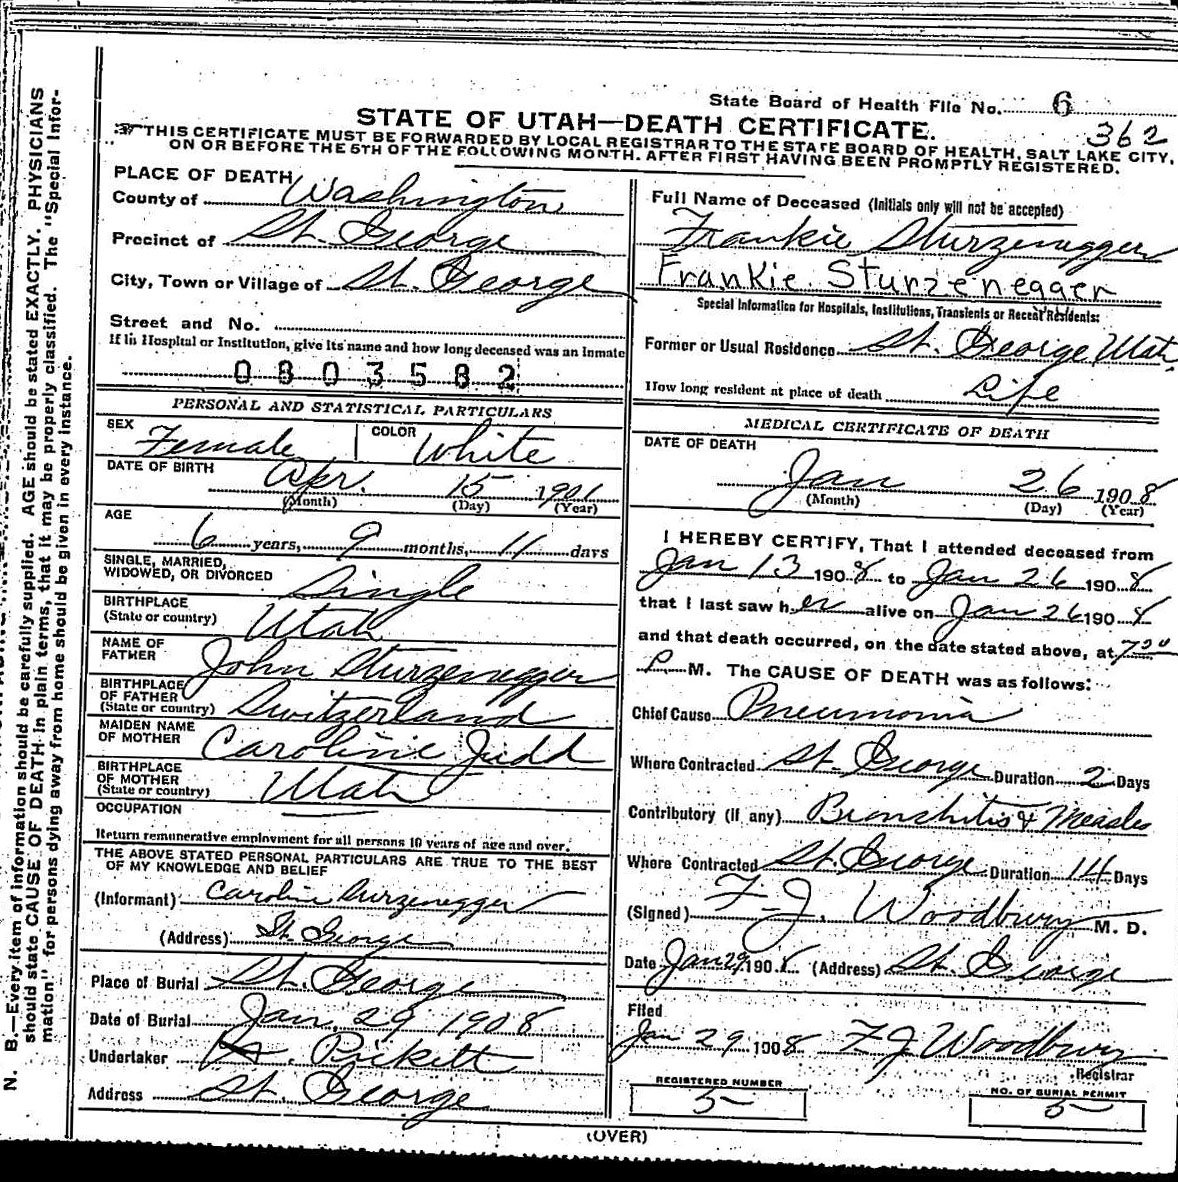 State Board of Health File No. 6
362
STATE OF UTAH—DEATH CERTIFICATE.
THIS CERTIFICATE MUST BE FORWARDED BY LOCAL REGISTRAR TO THE STATE BOARD OF HEALTH, SALT LAKE CITY,
ON OR BEFORE THE 5TH OF THE FOLLOWING MONTH. AFTER FIRST HAVING BEEN PROMPTLY REGISTERED.
PLACE OF DEATH
County of Washington
Precinct of St. George
City, Town or Village of St. George
Street and No.
If in Hospital or Institution, give its name and how long deceased was an inmate
0803582
PERSONAL AND STATISTICAL PARTICULARS
SEX Female COLOR White
DATE OF BIRTH Apr. 15 1901
(Month) (Day) (Year)
AGE
6 years, 9 months, 11 days
SINGLE, MARRIED,
WIDOWED, OR DIVORCED Single
BIRTHPLACE
(State or country) Utah
NAME OF
FATHER John Sturzenegger
BIRTHPLACE
OF FATHER
(State or country) Switzerland
MAIDEN NAME
OF MOTHER Caroline Judd
BIRTHPLACE
OF MOTHER
(State or country) Utah
OCCUPATION
Return remunerative employment for all persons 10 years of age and over.
THE ABOVE STATED PERSONAL PARTICULARS ARE TRUE TO THE BEST
OF MY KNOWLEDGE AND BELIEF
(Informant) Caroline Sturzenegger
(Address) St. George
Place of Burial St. George
Date of Burial Jan. 29 1908
Undertaker Pickett
Address St. George
Full Name of Deceased (Initials only will not be accepted)
Frankie Sturzenegger
Frankie Sturzenegger
Special Information for Hospitals, Institutions, Transients or Recent Residents:
Former or Usual Residence St. George Utah
How long resident at place of death Life
MEDICAL CERTIFICATE OF DEATH
DATE OF DEATH
Jan 26 1908
(Month) (Day) (Year)
I HEREBY CERTIFY, That I attended deceased from
Jan 13 1908 to Jan 26 1908
that I last saw her alive on Jan 26 1908
and that death occurred, on the date stated above, at 7:00
P M. The CAUSE OF DEATH was as follows:
Chief Cause Pneumonia
Where Contracted St. George Duration 2 Days
Contributory (if any) Bronchitis & Measles
Where Contracted St. George Duration 14 Days
(Signed) F. J. Woodbury M. D.
Date Jan 29, 1908 (Address) St. George
Filed
Jan 29 1908 F J Woodbury
Registrar
REGISTERED NUMBER
5
NO. OF BURIAL PERMIT
5
(OVER)
N. B.—Every item of information should be carefully supplied. AGE should be stated EXACTLY. PHYSICIANS
should state CAUSE OF DEATH in plain terms, that it may be properly classified. The "Special Infor-
mation" for persons dying away from home should be given in every instance.